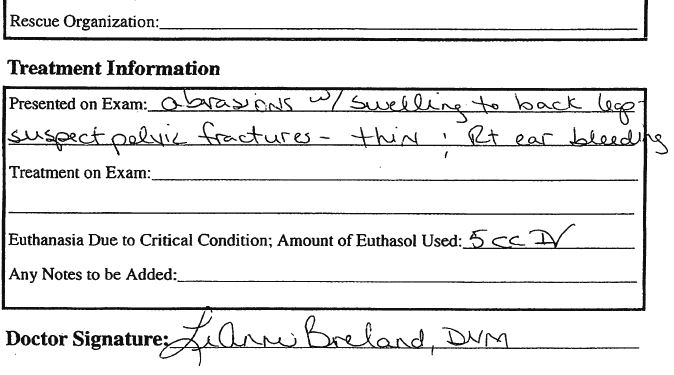 Rescue Organization:
Treatment Information
Presented on Exam: abrasions w/ swelling to back legs -
suspect pelvic fractures - thin ; Rt ear bleeding
Treatment on Exam:
Euthanasia Due to Critical Condition; Amount of Euthasol Used: 5 cc IV
Any Notes to be Added:
Doctor Signature: LiAnni Breland, DVM